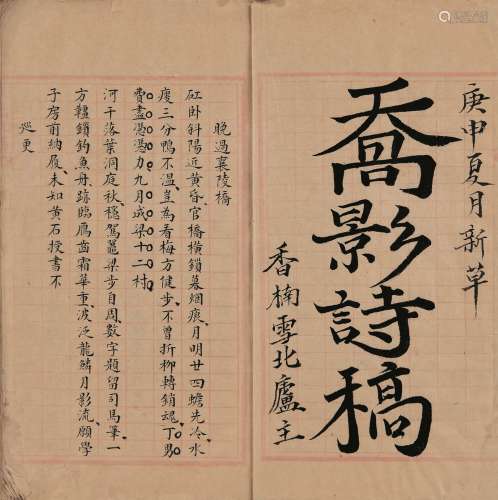 庚申夏月新草
喬影詩稿
香楠雪北廬主
晚過襄陵橋
矼卧斜陽近黄昏官橋橫鎖暮烟痕月明廿四蟾先冷水
瘦三分鴨不溫豈為看梅方健步不曾折柳轉鎖魂丁男
費盡憑憑力九月成梁十二村
河干落葉洞庭秋穩駕鼉梁步自周數字題留司馬筆一
方韁鎖釣魚舟跡臨鴈齒霜華重波泛龍鱗月影流願學
子房甭納履未知黄石授書不
巡更